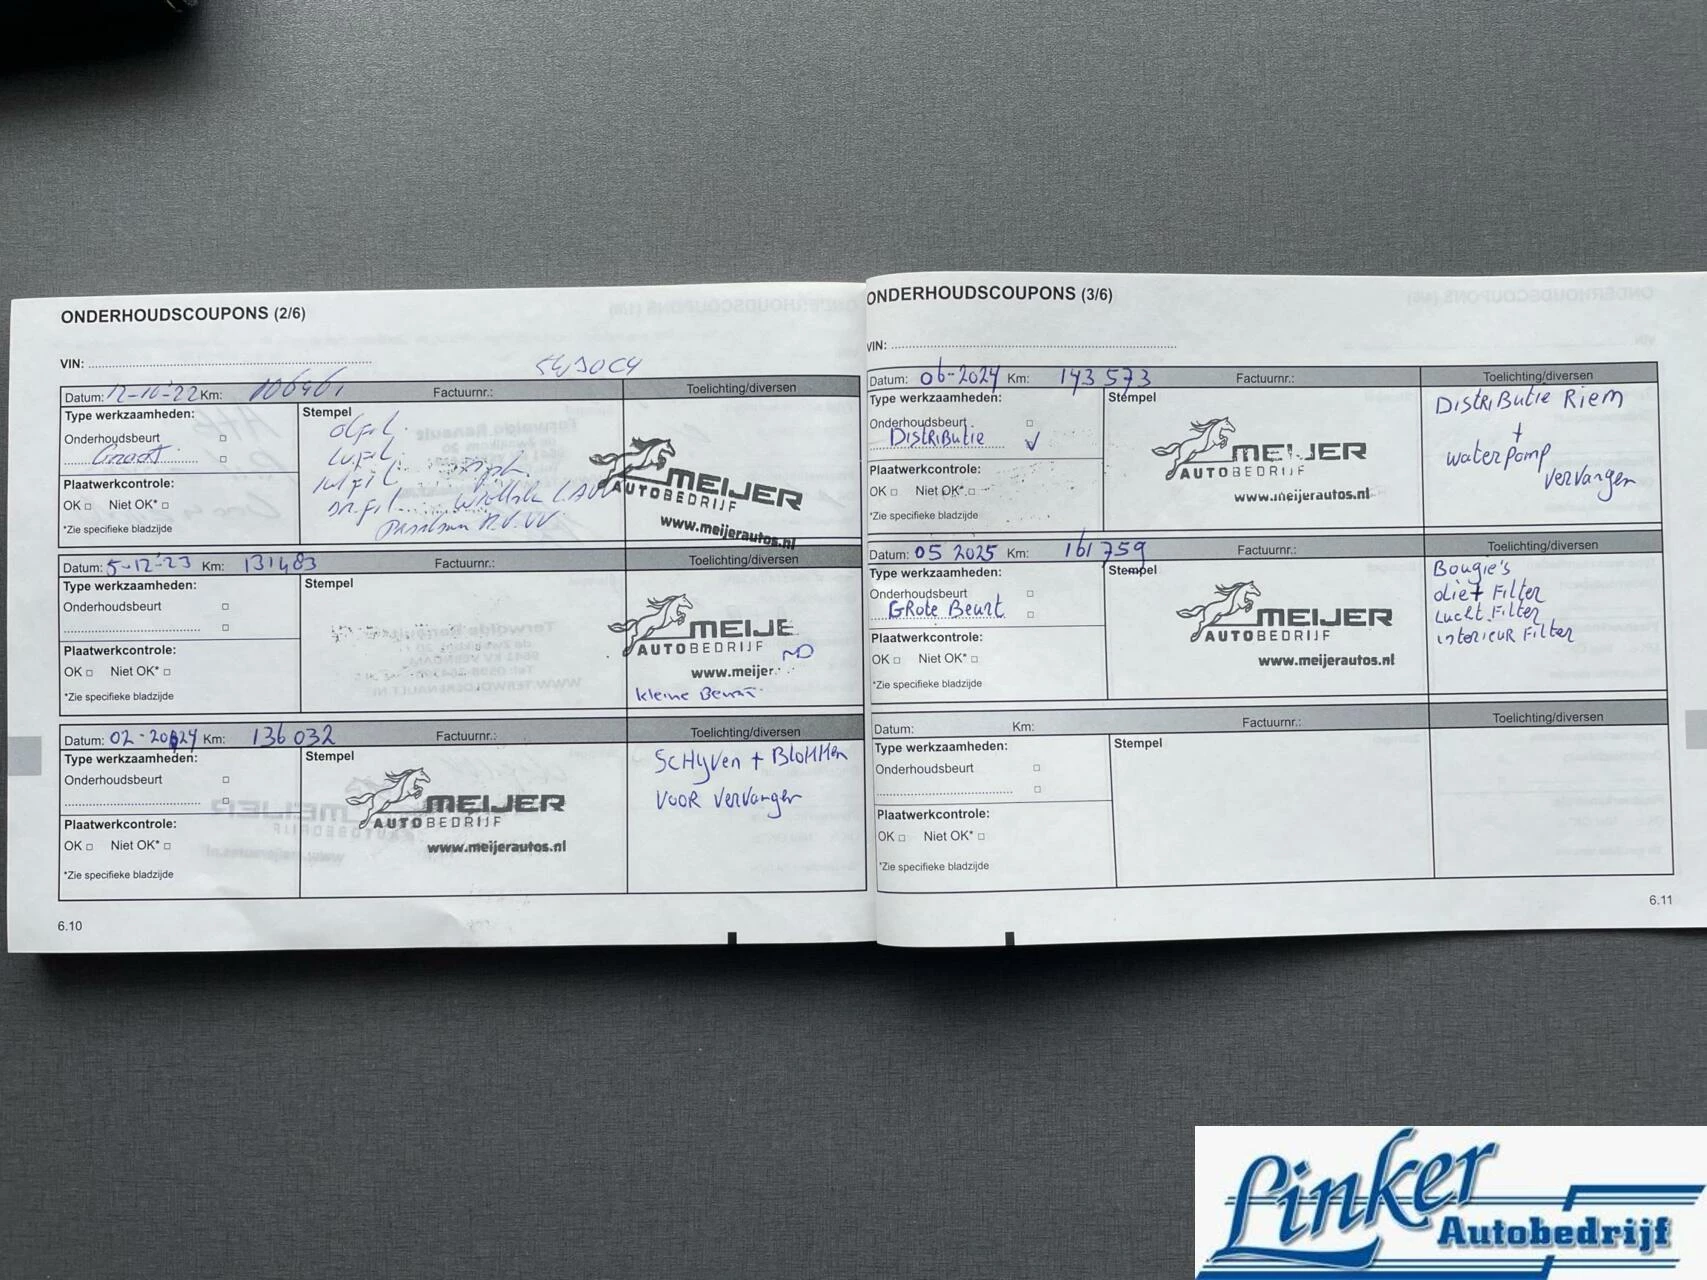 ONDERHOUDSCOUPONS (2/6)
VIN:
Datum: 12-10-'22 Km: 106461 Factuurnr.: Toelichting/diversen
Type werkzaamheden:
Onderhoudsbeurt
Groot
Stempel
MEIJER
AUTOBEDRIJF
www.meijerautos.nl
Plaatwerkcontrole:
OK Niet OK*
*Zie specifieke bladzijde
Datum: 5-12-'23 Km: 131483 Factuurnr.: Toelichting/diversen
Type werkzaamheden:
Onderhoudsbeurt
Stempel
MEIJE
AUTOBEDRIJF
www.meijer
kleine Beurt
Plaatwerkcontrole:
OK Niet OK*
*Zie specifieke bladzijde
Datum: 02-2024 Km: 136 032 Factuurnr.: Toelichting/diversen
Type werkzaamheden:
Onderhoudsbeurt
Stempel
MEIJER
AUTOBEDRIJF
www.meijerautos.nl
SCHijven + Blokken
VOOR vervangen
Plaatwerkcontrole:
OK Niet OK*
*Zie specifieke bladzijde
6.10
ONDERHOUDSCOUPONS (3/6)
VIN:
Datum: 06-2024 Km: 143 573 Factuurnr.: Toelichting/diversen
Type werkzaamheden:
Onderhoudsbeurt
Distributie
Stempel
MEIJER
AUTOBEDRIJF
www.meijerautos.nl
Distributie Riem
+
waterpomp
vervangen
Plaatwerkcontrole:
OK Niet OK*
*Zie specifieke bladzijde
Datum: 05 2025 Km: 161 759 Factuurnr.: Toelichting/diversen
Type werkzaamheden:
Onderhoudsbeurt
GRote Beurt
Stempel
MEIJER
AUTOBEDRIJF
www.meijerautos.nl
Bougie's
olie+ Filter
Lucht Filter
interieur Filter
Plaatwerkcontrole:
OK Niet OK*
*Zie specifieke bladzijde
Datum: Km: Factuurnr.: Toelichting/diversen
Type werkzaamheden:
Onderhoudsbeurt
Stempel
Plaatwerkcontrole:
OK Niet OK*
*Zie specifieke bladzijde
6.11
Linker
Autobedrijf